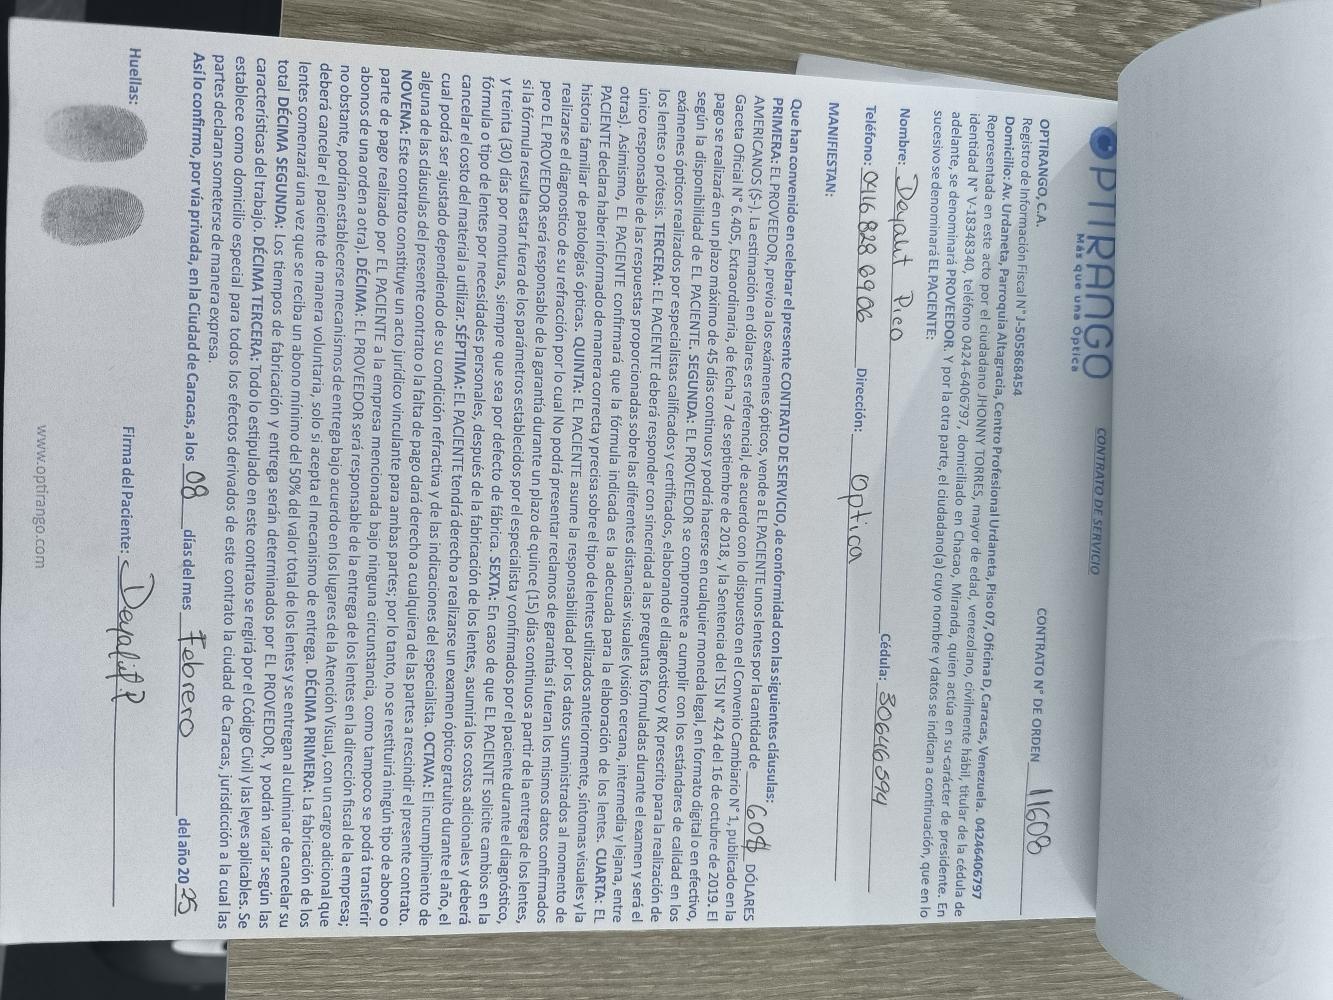 OPTIRANGO
Más que una Óptica
CONTRATO DE SERVICIO
CONTRATO N° DE ORDEN 11608
OPTIRANGO, C.A.
Registro de Información Fiscal N° J-505868454
Domicilio: Av. Urdaneta, Parroquia Altagracia, Centro Profesional Urdaneta, Piso 07, Oficina D, Caracas, Venezuela. 04246406797
Representada en este acto por el ciudadano JHONNY TORRES, mayor de edad, venezolano, civilmente hábil, titular de la cédula de
identidad N° V-18348340, teléfono 0424-6406797, domiciliado en Chacao, Miranda, quien actúa en su carácter de presidente. En
adelante, se denominará PROVEEDOR. Y por la otra parte, el ciudadano(a) cuyo nombre y datos se indican a continuación, que en lo
sucesivo se denominará EL PACIENTE:
Nombre: Dayalit Pico Cédula: 30646594
Teléfono: 0416 828 6906 Dirección: Optica
MANIFIESTAN:
Que han convenido en celebrar el presente CONTRATO DE SERVICIO, de conformidad con las siguientes cláusulas:
PRIMERA: EL PROVEEDOR, previo a los exámenes ópticos, vende a EL PACIENTE unos lentes por la cantidad de 60$ DÓLARES
AMERICANOS ($). La estimación en dólares es referencial, de acuerdo con lo dispuesto en el Convenio Cambiario N° 1, publicado en la
Gaceta Oficial N° 6.405, Extraordinaria, de fecha 7 de septiembre de 2018, y la Sentencia del TSJ N° 424 del 16 de octubre de 2019. El
pago se realizará en un plazo máximo de 45 días continuos y podrá hacerse en cualquier moneda legal, en formato digital o en efectivo,
según la disponibilidad de EL PACIENTE. SEGUNDA: EL PROVEEDOR se compromete a cumplir con los estándares de calidad en los
exámenes ópticos realizados por especialistas cualificados y certificados, elaborando el diagnóstico y RX prescrito para la realización de
los lentes o prótesis. TERCERA: EL PACIENTE deberá responder con sinceridad a las preguntas formuladas durante el examen y será el
único responsable de las respuestas proporcionadas sobre las diferentes distancias visuales (visión cercana, intermedia y lejana, entre
otras). Asimismo, EL PACIENTE confirmará que la fórmula indicada es la adecuada para la elaboración de los lentes. CUARTA: EL
PACIENTE declara haber informado de manera correcta y precisa sobre el tipo de lentes utilizados anteriormente, síntomas visuales y la
historia familiar de patologías ópticas. QUINTA: EL PACIENTE asume la responsabilidad por los datos suministrados al momento de
realizarse el diagnostico de su refracción por lo cual No podrá presentar reclamos de garantía si fueran los mismos datos confirmados
pero EL PROVEEDOR será responsable de la garantía durante un plazo de quince (15) días continuos a partir de la entrega de los lentes,
si la fórmula resulta estar fuera de los parámetros establecidos por el especialista y confirmados por el paciente durante el diagnóstico,
y treinta (30) días por monturas, siempre que sea por defecto de fábrica. SEXTA: En caso de que EL PACIENTE solicite cambios en la
fórmula o tipo de lentes por necesidades personales, después de la fabricación de los lentes, asumirá los costos adicionales y deberá
cancelar el costo del material a utilizar. SÉPTIMA: EL PACIENTE tendrá derecho a realizarse un examen óptico gratuito durante el año, el
cual podrá ser ajustado dependiendo de su condición refractiva y de las indicaciones del especialista. OCTAVA: El incumplimiento de
alguna de las cláusulas del presente contrato o la falta de pago dará derecho a cualquiera de las partes a rescindir el presente contrato.
NOVENA: Este contrato constituye un acto jurídico vinculante para ambas partes; por lo tanto, no se restituirá ningún tipo de abono o
parte de pago realizado por EL PACIENTE a la empresa mencionada bajo ninguna circunstancia, como tampoco se podrá transferir
abonos de una orden a otra). DÉCIMA: EL PROVEEDOR será responsable de la entrega de los lentes en la dirección fiscal de la empresa;
no obstante, podrían establecerse mecanismos de entrega bajo acuerdo en los lugares de la Atención Visual, con un cargo adicional que
deberá cancelar el paciente de manera voluntaria, solo si acepta el mecanismo de entrega. DÉCIMA PRIMERA: La fabricación de los
lentes comenzará una vez que se reciba un abono mínimo del 50% del valor total de los lentes y se entregan al culminar de cancelar su
total DÉCIMA SEGUNDA: Los tiempos de fabricación y entrega serán determinados por EL PROVEEDOR, y podrán variar según las
características del trabajo. DÉCIMA TERCERA: Todo lo estipulado en este contrato se regirá por el Código Civil y las leyes aplicables. Se
establece como domicilio especial para todos los efectos derivados de este contrato la ciudad de Caracas, jurisdicción a la cual las
partes declaran someterse de manera expresa.
Así lo confirmo, por vía privada, en la Ciudad de Caracas, a los 08 días del mes Febrero del año 2025
Huellas: Firma del Paciente: Deyalit P
www.optirango.com